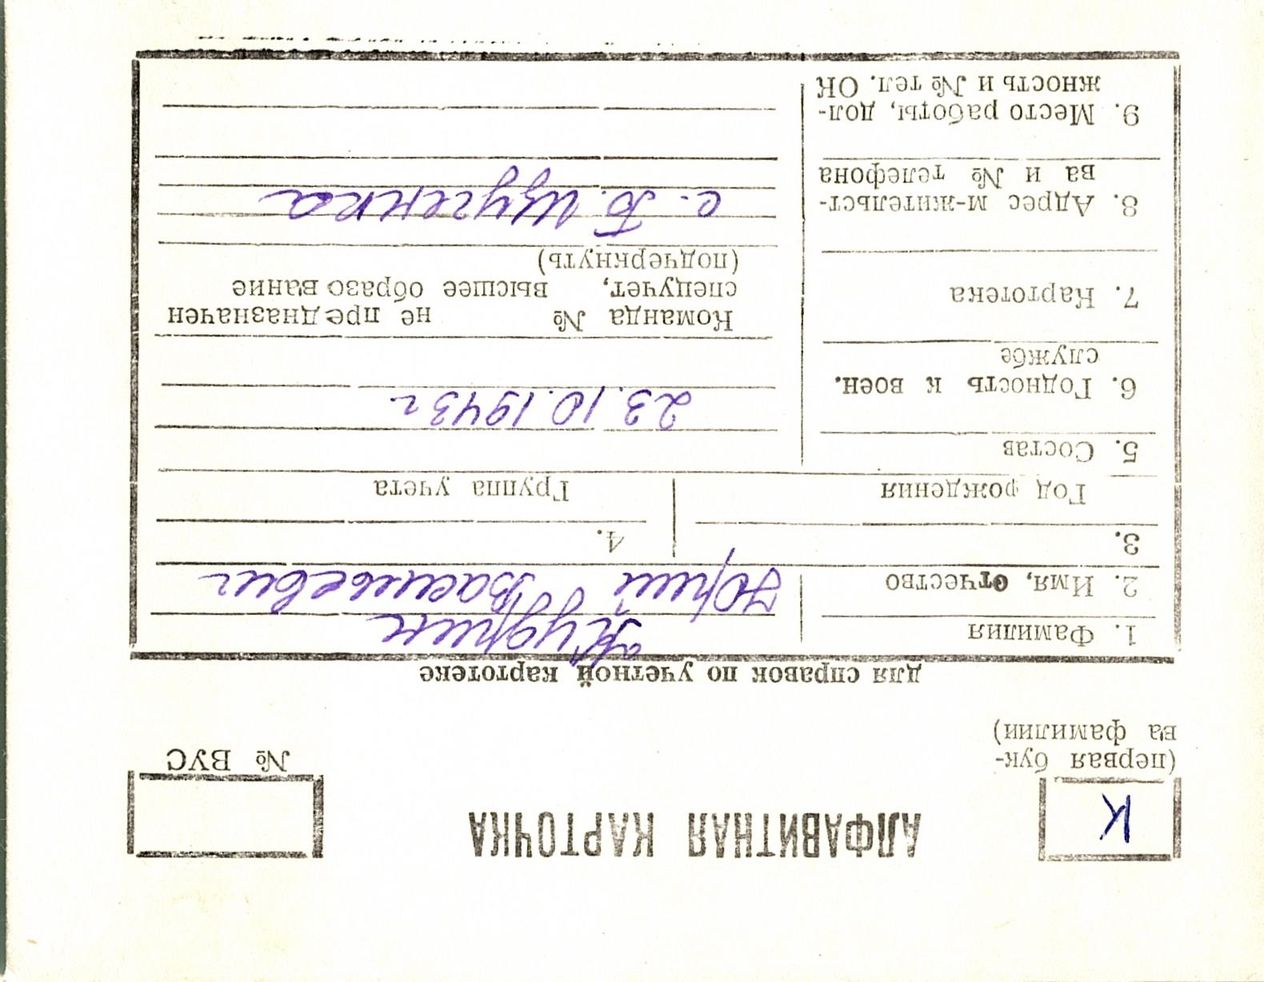 К
АЛФАВИТНАЯ КАРТОЧКА
(первая бук-
ва фамилии)
№ ВУС
для справок по учетной картотеке
1. Фамилия
Кудрин
2. Имя, отчество
Юрий Васильевич
3.
4.
Год рождения
Группа учета
5. Состав
23.10.1943 г.
6. Годность к воен.
службе
7. Картотека
Команда № не предназначен
спецучет, высшее образование
(подчеркнуть)
8. Адрес м-жительст-
ва и № телефона
с. Б. Щугенка
9. Место работы, дол-
жность и № тел. ОК